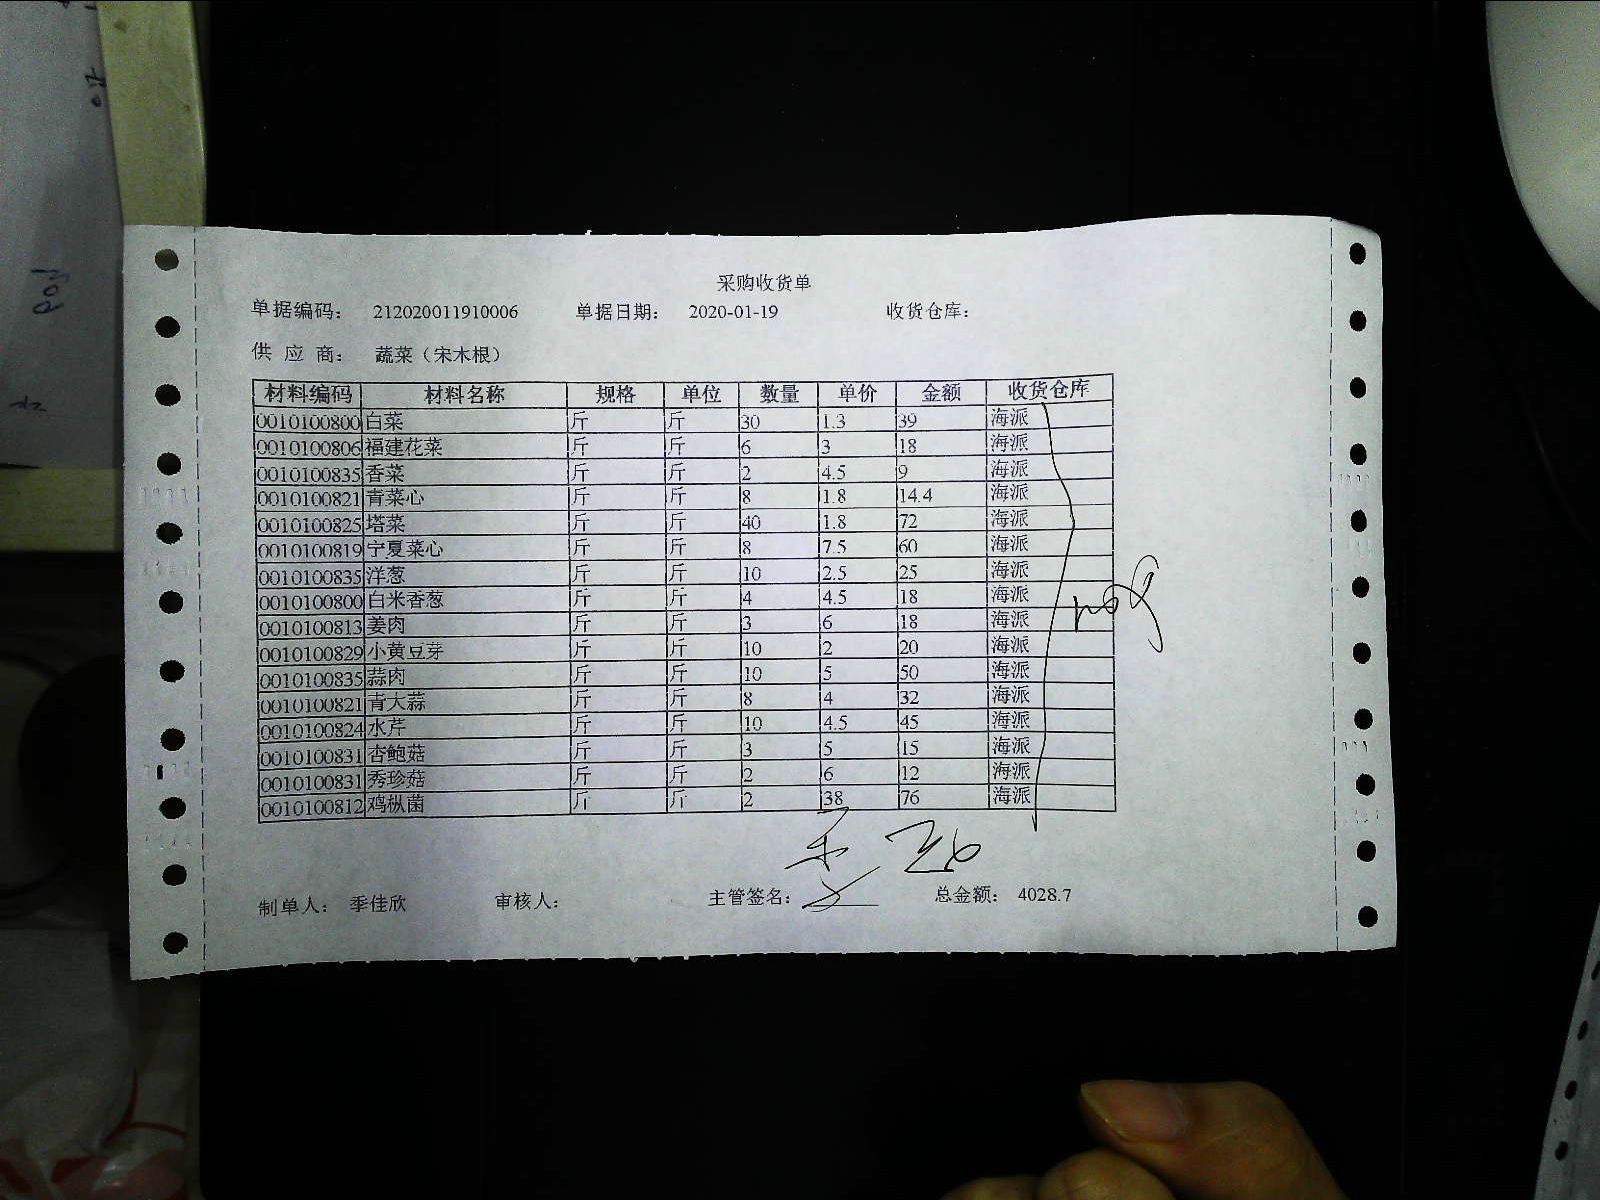 采购收货单
单据编码： 212020011910006 单据日期： 2020-01-19 收货仓库：
供 应 商： 蔬菜（宋木根）
材料编码 材料名称 规格 单位 数量 单价 金额 收货仓库
0010100800 白菜 斤 斤 30 1.3 39 海派
0010100806 福建花菜 斤 斤 6 3 18 海派
0010100835 香菜 斤 斤 2 4.5 9 海派
0010100821 青菜心 斤 斤 8 1.8 14.4 海派
0010100825 塔菜 斤 斤 40 1.8 72 海派
0010100819 宁夏菜心 斤 斤 8 7.5 60 海派
0010100835 洋葱 斤 斤 10 2.5 25 海派
0010100800 白米香葱 斤 斤 4 4.5 18 海派
0010100813 姜肉 斤 斤 3 6 18 海派
0010100829 小黄豆芽 斤 斤 10 2 20 海派
0010100835 蒜肉 斤 斤 10 5 50 海派
0010100821 青大蒜 斤 斤 8 4 32 海派
0010100824 水芹 斤 斤 10 4.5 45 海派
0010100831 杏鲍菇 斤 斤 3 5 15 海派
0010100831 秀珍菇 斤 斤 2 6 12 海派
0010100812 鸡枞菌 斤 斤 2 38 76 海派
制单人： 季佳欣 审核人： 主管签名： 总金额： 4028.7